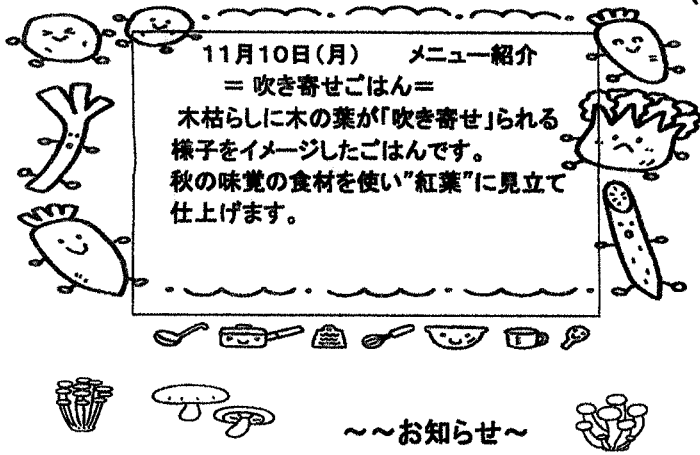 11月10日(月)　　メニュー紹介
＝ 吹き寄せごはん＝
木枯らしに木の葉が「吹き寄せ」られる
様子をイメージしたごはんです。
秋の味覚の食材を使い”紅葉”に見立て
仕上げます。
～～お知らせ～